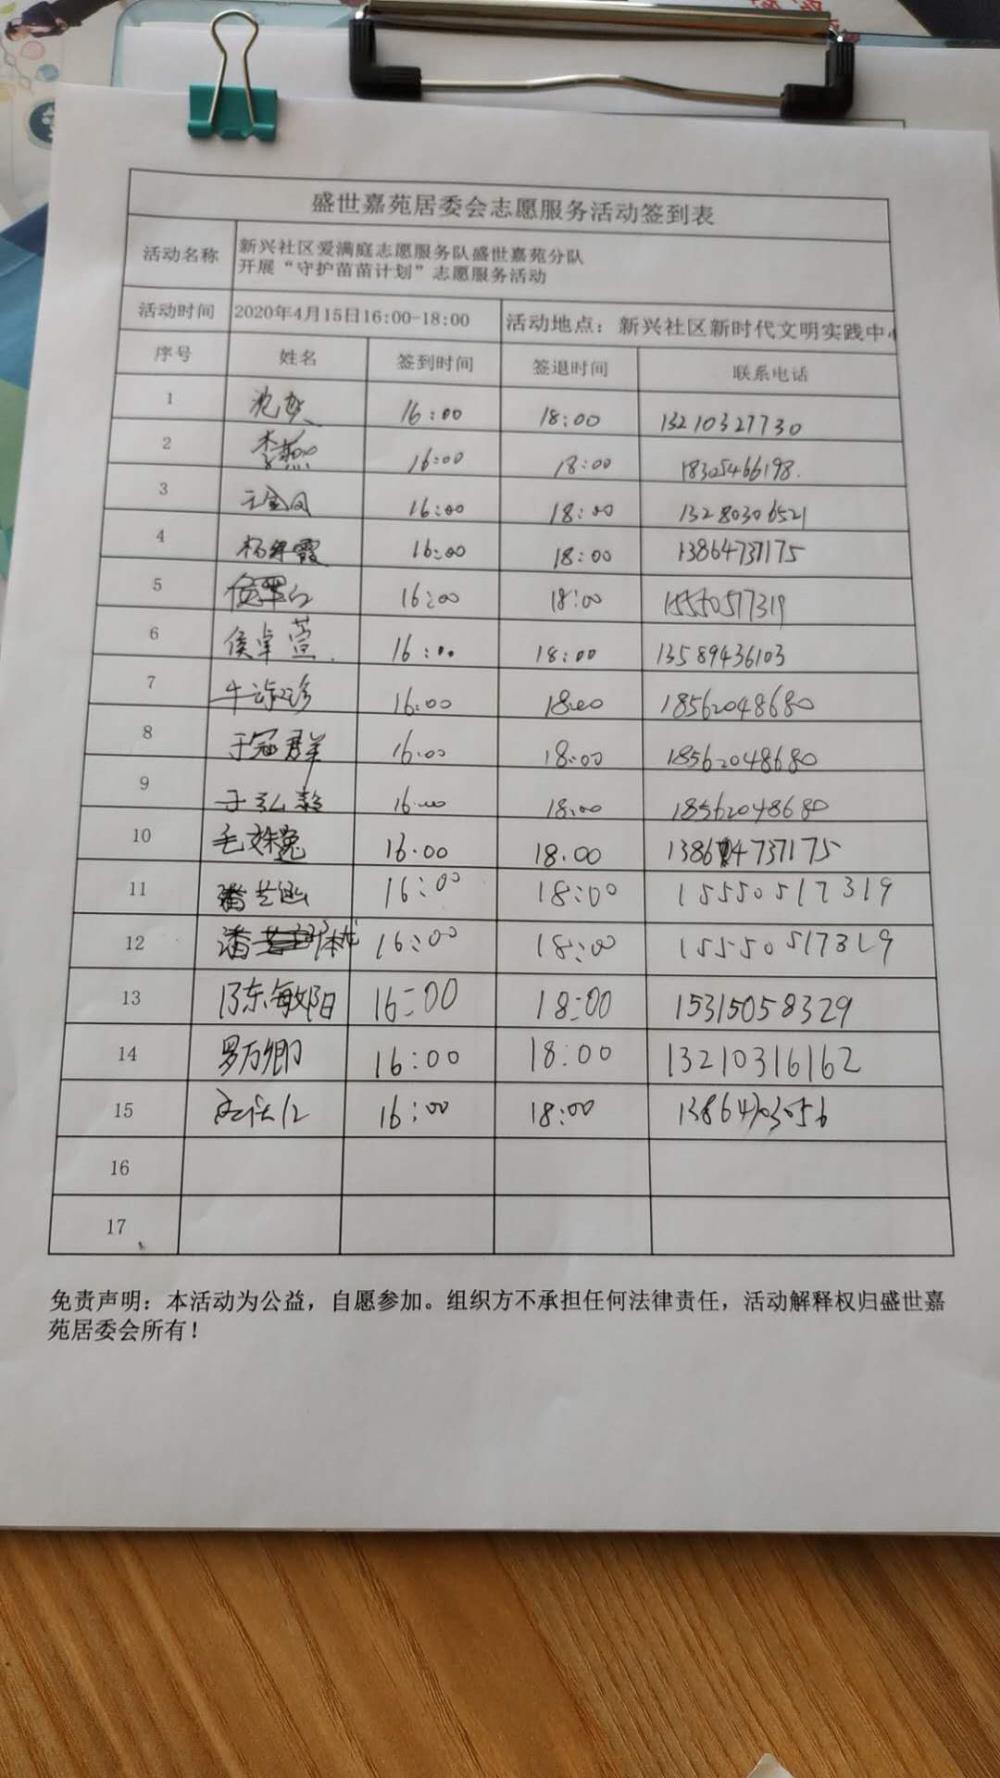 盛世嘉苑居委会志愿服务活动签到表
活动名称 新兴社区爱满庭志愿服务队盛世嘉苑分队
开展“守护苗苗计划”志愿服务活动
活动时间 2020年4月15日16:00-18:00 活动地点：新兴社区新时代文明实践中心
序号 姓名 签到时间 签退时间 联系电话
1 16:00 18:00 13210327730
2 李燕 16:00 18:00 18305466198.
3 16:00 18:00 13280306521
4 杨霞 16:00 18:00 13864737175
5 16:00 18:00 15550517319
6 侯卓萱 16:00 18:00 13589436103
7 牛珍 16:00 18:00 18562048680
8 于冠群 16:00 18:00 18562048680
9 于弘 16:00 18:00 18562048680
10 毛姝 16:00 18:00 13864737175
11 潘艺涵 16:00 18:00 15550517319
12 潘 16:00 18:00 15550517319
13 陈敏阳 16:00 18:00 15315058329
14 罗万卿 16:00 18:00 13210316162
15 16:00 18:00 13864703056
16
17
免责声明：本活动为公益，自愿参加。组织方不承担任何法律责任，活动解释权归盛世嘉
苑居委会所有！